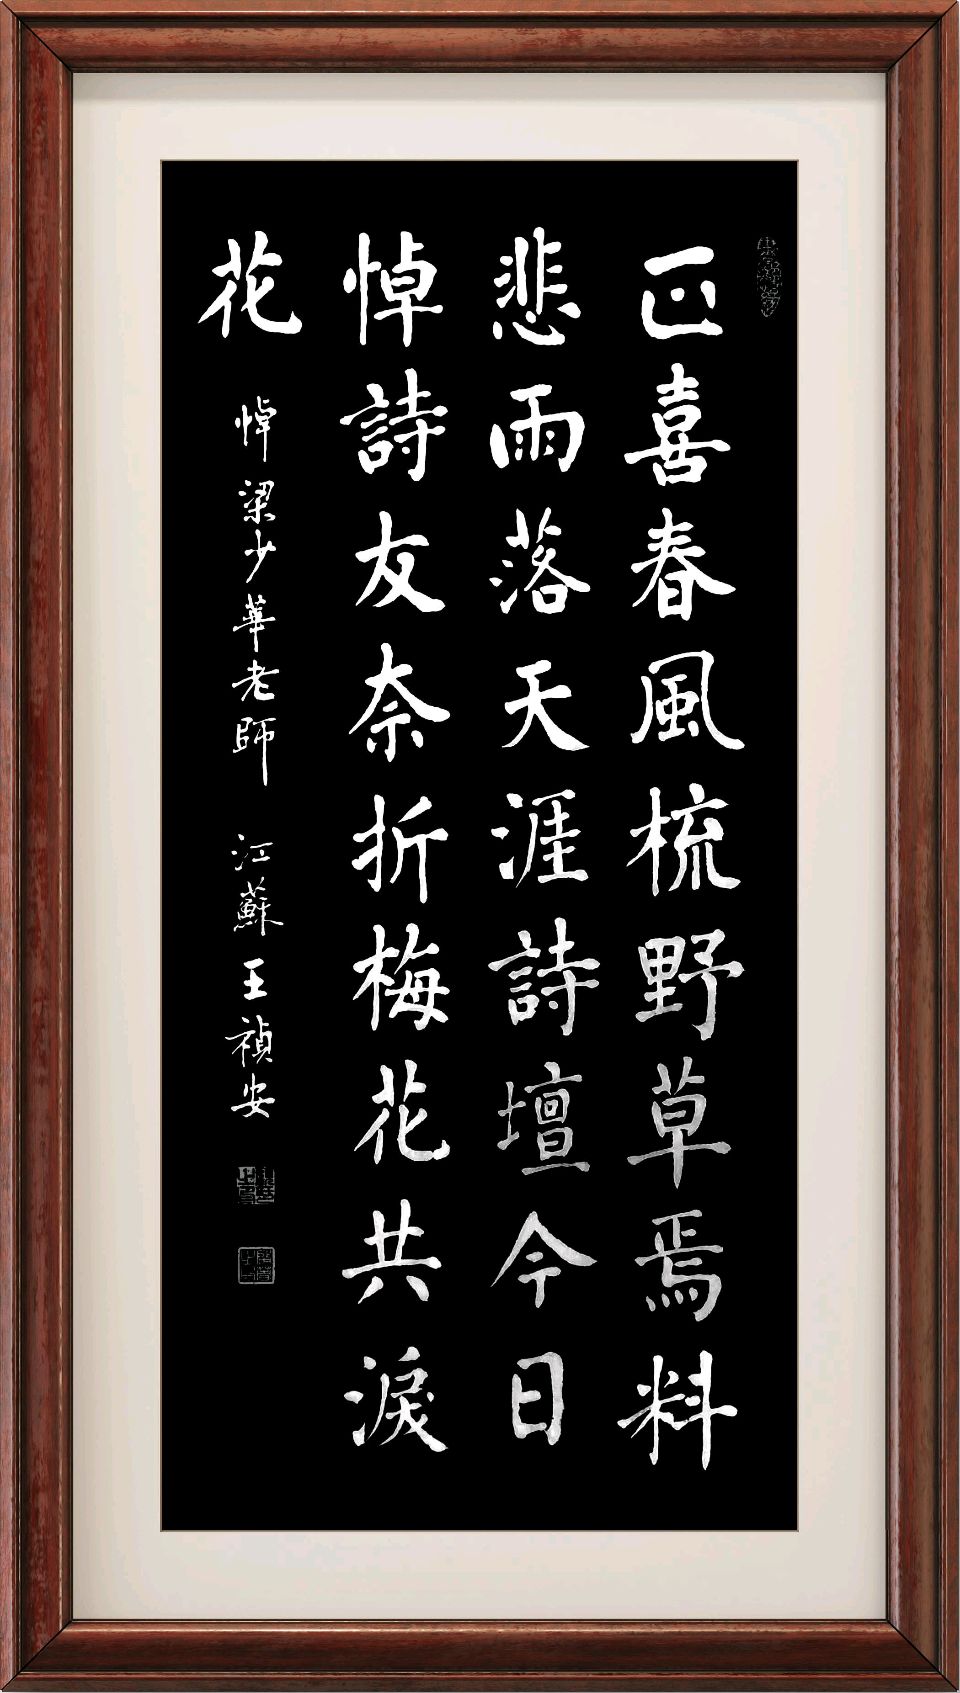 正喜春風梳野草焉料
悲雨落天涯詩壇今日
悼詩友奈折梅花共淚
花
悼梁少華老師 江蘇王禎安